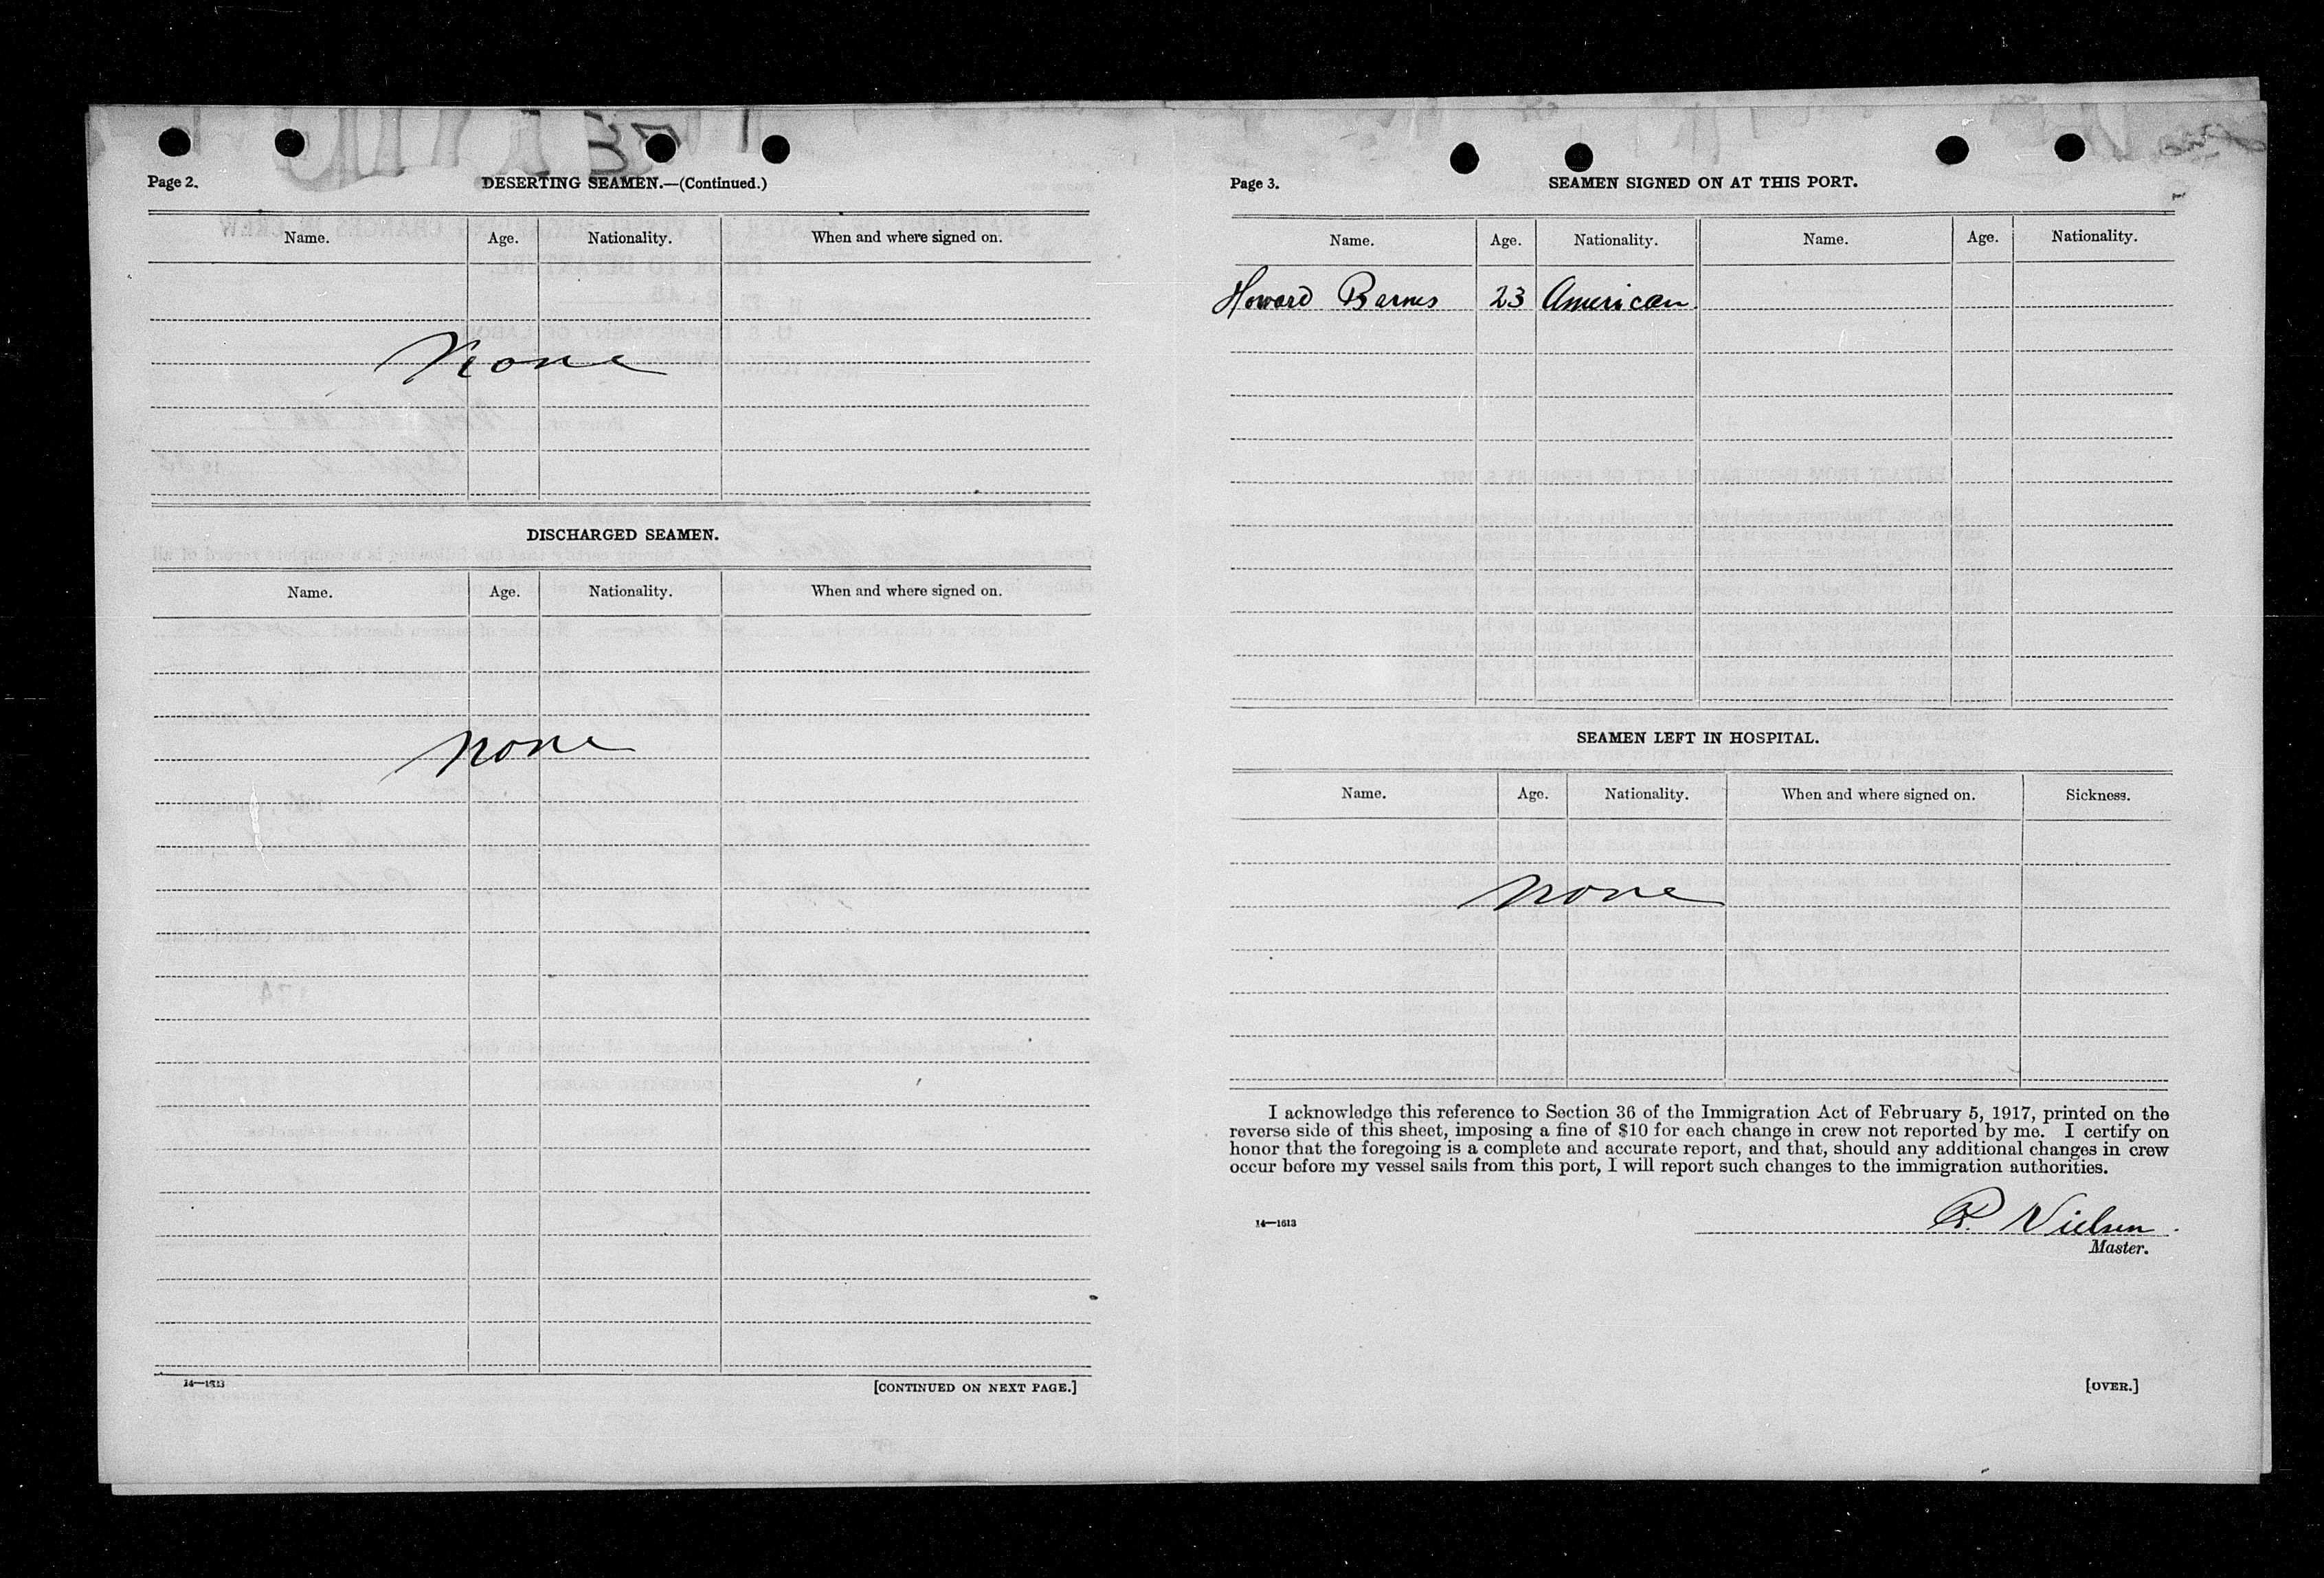 Page 2.
DESERTING SEAMEN.—(Continued.)
Name. Age. Nationality. When and where signed on.
None
DISCHARGED SEAMEN.
Name. Age. Nationality. When and where signed on.
None
14—1613
[CONTINUED ON NEXT PAGE.]
Page 3.
SEAMEN SIGNED ON AT THIS PORT.
Name. Age. Nationality. Name. Age. Nationality.
Howard Barnes 23 American
SEAMEN LEFT IN HOSPITAL.
Name. Age. Nationality. When and where signed on. Sickness.
None
I acknowledge this reference to Section 36 of the Immigration Act of February 5, 1917, printed on the
reverse side of this sheet, imposing a fine of $10 for each change in crew not reported by me. I certify on
honor that the foregoing is a complete and accurate report, and that, should any additional changes in crew
occur before my vessel sails from this port, I will report such changes to the immigration authorities.
14—1613
P. Nielsen
Master.
[OVER.]